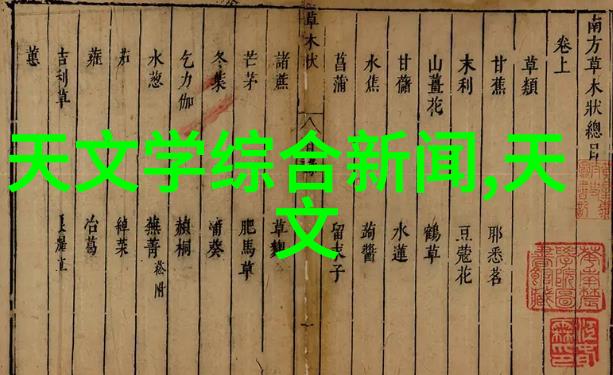 天文学综合新闻,天
文
南方草木狀總目
卷上
草類
甘蕉 耶悉茗
末利 豆蔻花
山薑花 鶴草
甘藷 水蓮
水蕉 蒟醬
菖蒲 留求子
草木狀
諸蔗 草麴
芒茅 肥馬草
冬葉 蒲葵
乞力伽 赬桐
水蔥 蕪菁 菘附
茄 綽菜
蕹 冶葛
吉利草
蕙